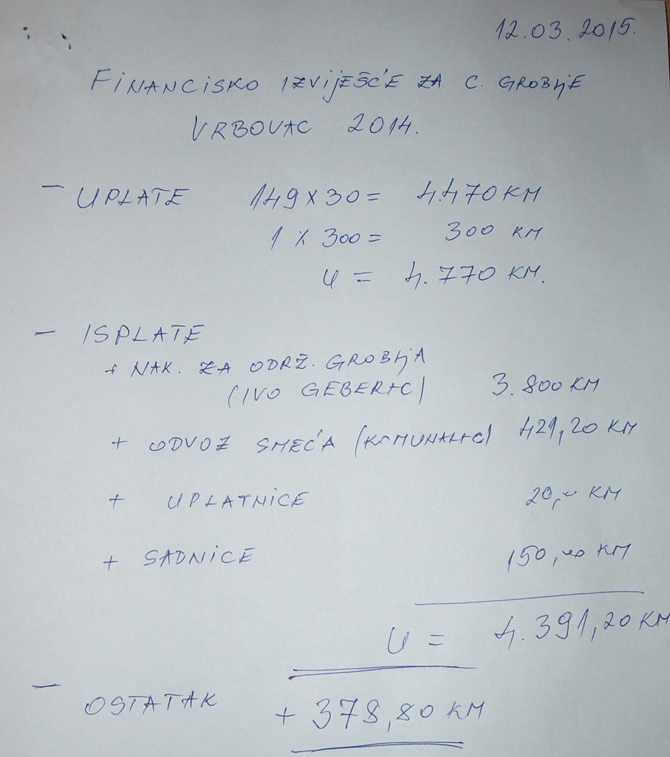 12.03.2015.
FINANCISKO IZVIJEŠĆE ZA C. GROBLJE
VRBOVAC 2014.
- UPLATE 149 X 30 = 4.470 KM
1 X 300 = 300 KM
U = 4.770 KM.
- ISPLATE
+ NAK. ZA ODRŽ. GROBLJA
(IVO GEBERIC) 3.800 KM
+ ODVOZ SMEĆA (KOMUNALAC) 421,20 KM
+ UPLATNICE 20,00 KM
+ SADNICE 150,00 KM
U = 4.391,20 KM
- OSTATAK + 378,80 KM